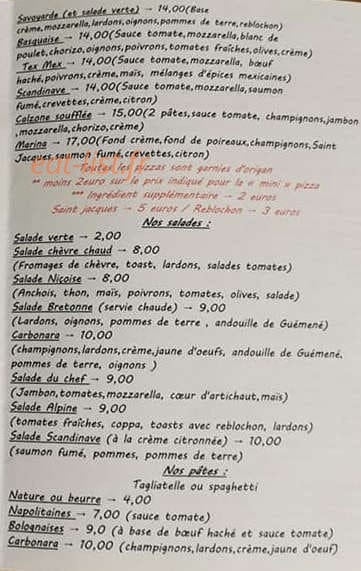 Savoyarde (et salade verte) → 14,00(Base
crème,mozzarella,lardons,oignons,pommes de terre,reblochon)
Basquaise → 14,00(Sauce tomate,mozzarella,blanc de
poulet,chorizo,oignons,poivrons,tomates fraîches,olives,crème)
Tex Mex → 14,00(Sauce tomate,mozzarella, bœuf
haché,poivrons,crème,maïs, mélanges d'épices mexicaines)
Scandinave → 14,00(Sauce tomate,mozzarella,saumon
fumé,crevettes,crème,citron)
Calzone soufflée → 15,00(2 pâtes,sauce tomate, champignons,jambon
,mozzarella,chorizo,crème)
Marina → 17,00(Fond crème,fond de poireaux,champignons,Saint
Jacques,saumon fumé,crevettes,citron)
Toutes les pizzas sont garnies d'origan
** moins 2euro sur le prix indiqué pour la « mini » pizza
*** Ingrédient supplémentaire → 2 euros
Saint jacques → 5 euros / Reblochon → 3 euros
Nos salades :
Salade verte → 2,00
Salade chèvre chaud → 8,00
(Fromages de chèvre, toast, lardons, salades tomates)
Salade Niçoise → 8,00
(Anchois, thon, maïs, poivrons, tomates, olives, salade)
Salade Bretonne (servie chaude) → 9,00
(Lardons, oignons, pommes de terre , andouille de Guémené)
Carbonara → 10,00
(champignons,lardons,crème,jaune d'oeufs, andouille de Guémené,
pommes de terre, oignons )
Salade du chef → 9,00
(Jambon,tomates,mozzarella, cœur d'artichaut,maïs)
Salade Alpine → 9,00
(tomates fraîches, coppa, toasts avec reblochon, lardons)
Salade Scandinave (à la crème citronnée) → 10,00
(saumon fumé, pommes, pommes de terre)
Nos pâtes :
Tagliatelle ou spaghetti
Nature ou beurre → 4,00
Napolitaines → 7,00 (sauce tomate)
Bolognaises → 9,0 (à base de bœuf haché et sauce tomate)
Carbonara → 10,00 (champignons,lardons,crème,jaune d'oeuf)